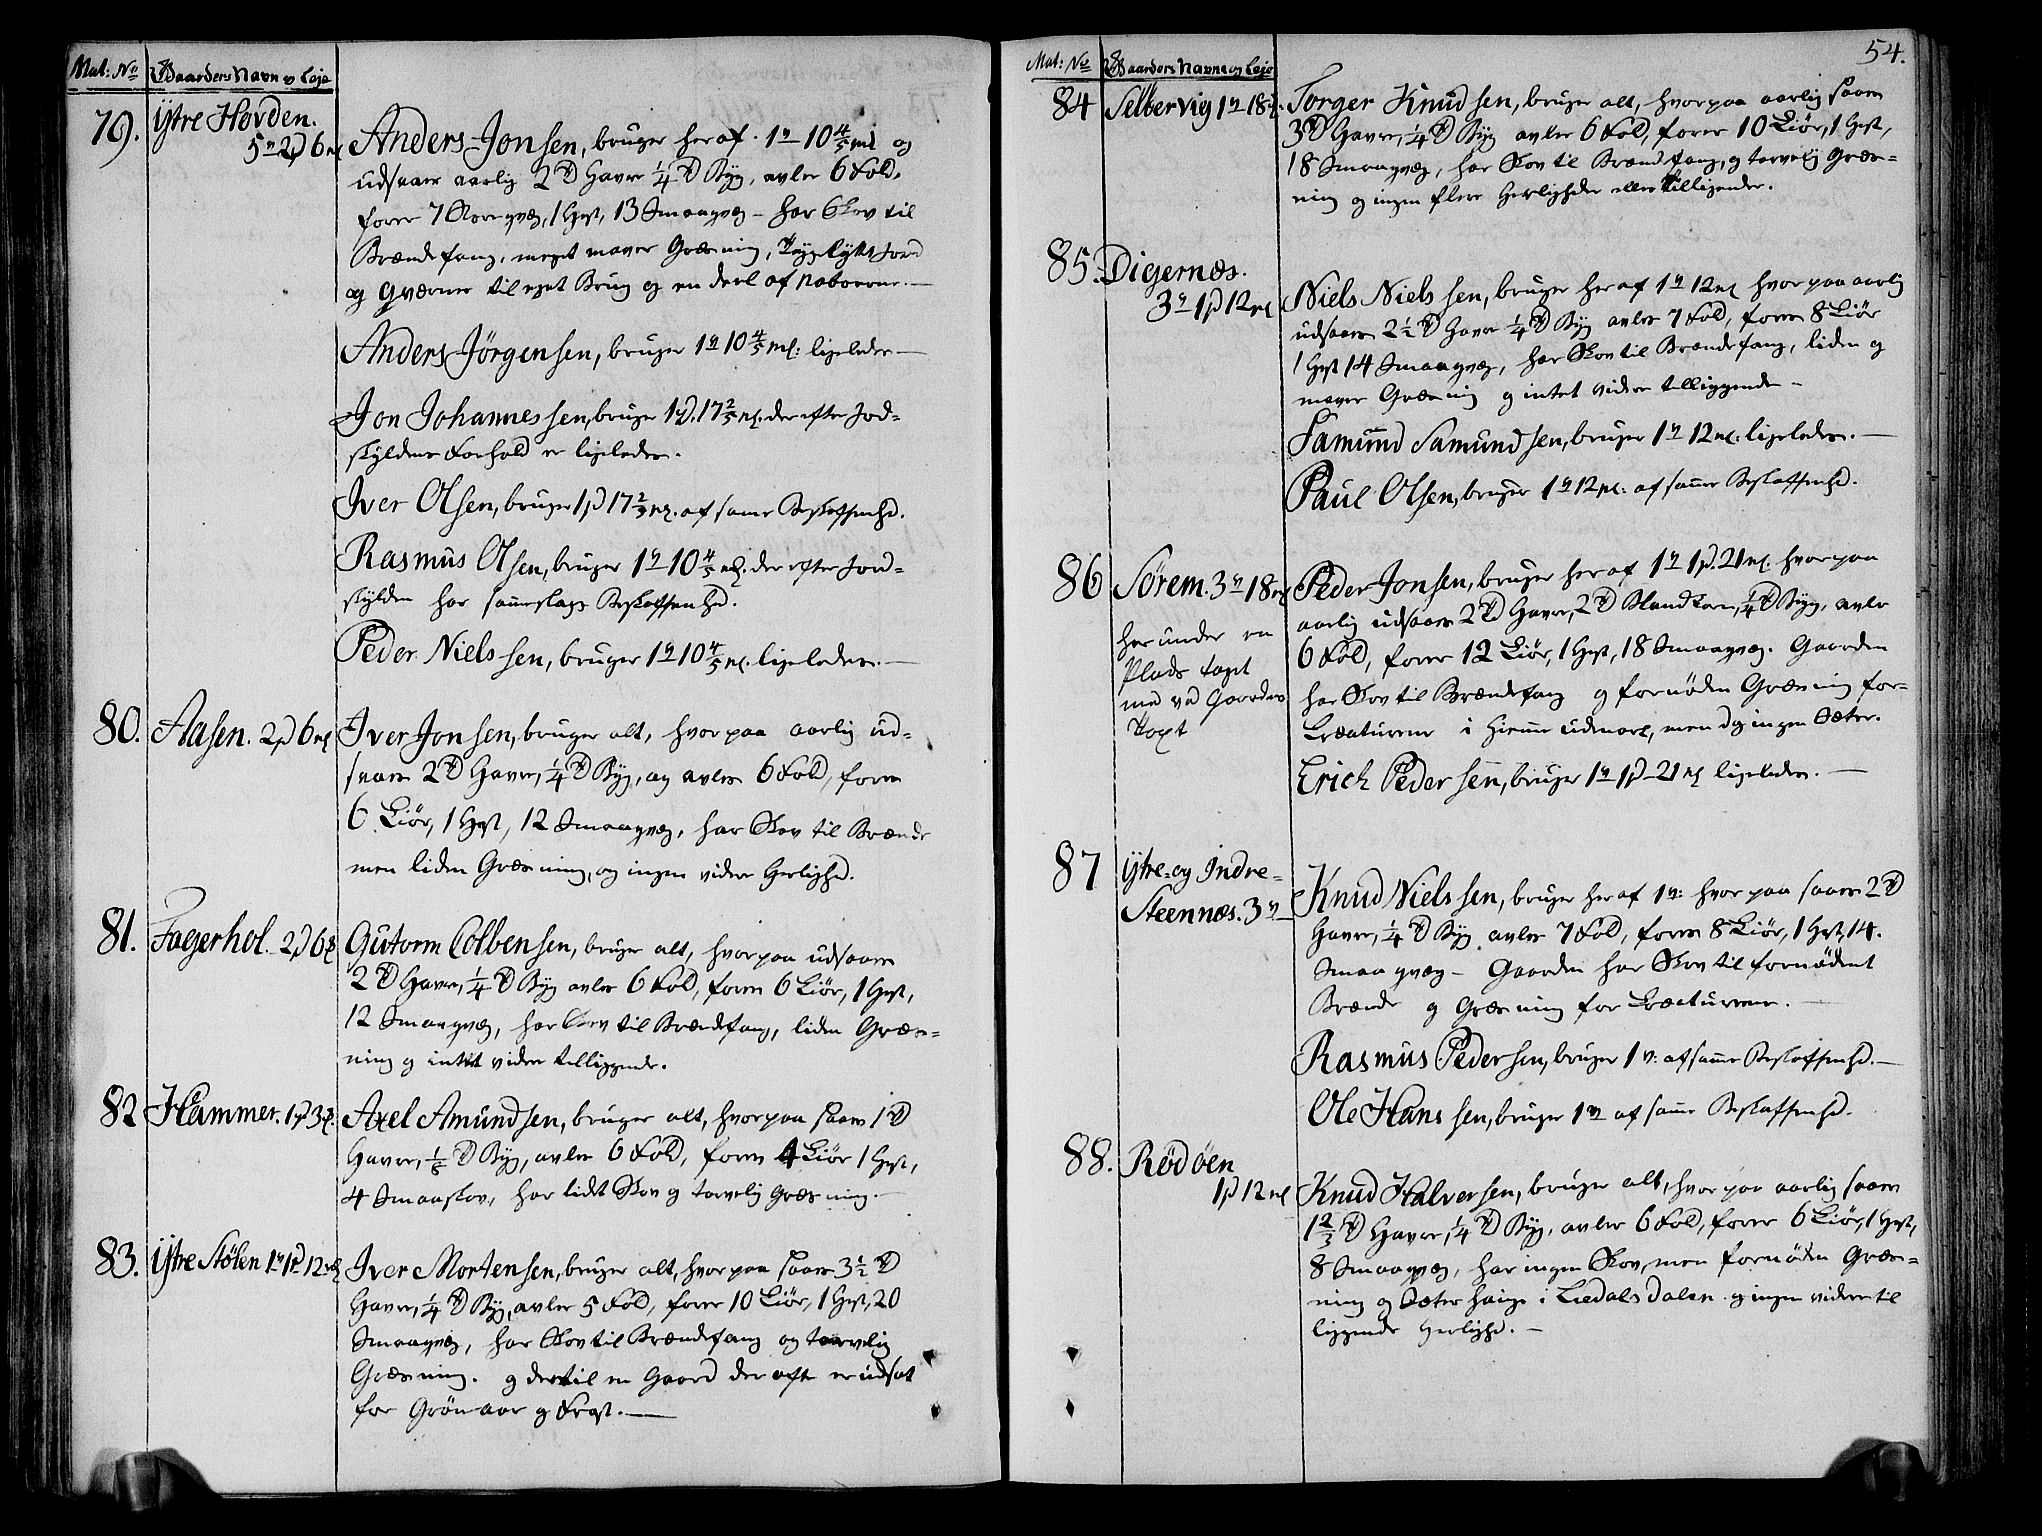 Mat: No
Gaarders Navn og Leje
79.
Ytre Hovden.
5 v 2 p 6 ml
Anders Jonsen, bruger heraf 1 v 10 4/5 ml og
udsaaer aarlig 2 Td Havre 1/4 Td Byg, avler 6 Fold,
foder 7 Storegvæg, 1 Hest, 13 Smaagvæg – har Skov til
Brændefang, meget maver Græsning, Jord
og Qværner til eget Brug og en deel af Naboerne. —
Anders Jörgensen, bruger 1 v 10 4/5 ml: ligeleder —
Jon Johannessen, bruger 1 p. 17 2/5 ml. der efter Jord=
skyldens Forhold er ligeleder.
Iver Olsen, bruger 1 p 17 2/5 ml. af same Beskaffenhed.
Rasmus Olsen, bruger 1 v 10 4/5 ml. der efter Jord=
skylden har sammeslags Beskaffenhed.
Peder Nielssen, bruger 1 v 10 4/5 ml. ligeleder. —
80.
Aasen. 2 p 6 ml
Iver Jonsen, bruger alt, hvorpaa aarlig ud=
saaes 2 Td Havre, 1/4 Td Byg, og avler 6 Fold, foder
6 Kiör, 1 Hest, 12 Smaagvæg, har Skov til Brænde
men liden Græsning, og ingen videre Herlighed.
81.
Fagerhol. 2 p 6 ml
Gutorm Colbensen, bruger alt, hvorpaa udsaaes
2 Td Havre, 1/4 Td Byg avler 6 Fold, foder 6 Kiör, 1 Hest,
12 Smaagvæg, har Skov til Brændefang, liden Græs=
ning og intet videre tilliggende.
82
Hammer. 1 p 3 ml.
Axel Amundsen, bruger alt, hvorpaa saaes 1 Td
Havre, 1/8 Td Byg, avler 6 Fold, foder 4 Kiör 1 Hest,
4 Smaaskov, har lidt Skov og tarvelig Græsning. —
83.
Ytre Stölen 1 v 1 p 12 ml
Iver Mortensen, bruger alt, hvorpaa saaes 3 1/2 Td
Havre, 1/4 Td Byg, avler 5 Fold, foder 10 Kiör, 1 Hest, 20
Smaagvæg, har Skov til Brændefang og tarvelig
Græsning. og dertil en Gaard der ofte er udsat
for Grönaar og Frost. —
54.
Mat: No
Gaarders Navne og Leje
84
Selbervig 1 v 18 ml.
Torger Knudsen, bruger alt, hvorpaa aarlig saaes
3 Td Havre, 1/4 Td Byg avler 6 Fold, foder 10 Kiör, 1 Hest,
18 Smaagvæg, har Skov til Brændefang, og tarvelig Græs=
ning og ingen flere Herligheder eller Tilliggender.
85.
Digernæs.
3 v 1 p 12 ml
Niels Nielssen, bruger heraf 1 v 12 ml hvorpaa aarlig
udsaaes 2 1/2 Td Havre 1/4 Td Byg avler 7 Fold, foder 8 Kiör
1 Hest 14 Smaagvæg, har Skov til Brændefang, liden og
maver Græsning og intet videre tilliggende –
Samund Samundsen, bruger 1 v 12 ml: ligeleder. —
Paul Olsen, bruger 1 v 12 ml: af same Beskaffenhed.
86
Sörem. 3 v 18 ml
herunder en
Plads taget
med ved Gaardens
Taxt
Peder Jonsen, bruger heraf 1 v 1 p. 21 ml. hvorpaa
aarlig udsaaes 2 Td Havre, 2 Td Blandkorn, 1/4 Td Byg, avler
6 Fold, foder 12 Kiör, 1 Hest, 18 Smaagvæg. Gaarden
har Skov til Brændefang og fornöden Græsning for=
Kræaturene i Hiemme udmark, men dog ingen Sæter.
Erich Pedersen, bruger 1 v 1 p – 21 ml ligeleder. —
87
Ytre= og Indre=
Steennæs. 3 v
Knud Nielssen, bruger heraf 1 v: hvorpaa saaes 2 Td
Havre, 1/4 Td Byg avler 7 Fold, foder 8 Kiör, 1 Hest, 14.
Smaagvæg – Gaarden har Skov til fornödent
Brænde og Græsning for Kræaturene. —
Rasmus Pedersen, bruger 1 v: af same Beskaffenhed. —
Ole Hanssen, bruger 1 v af same Beskaffenhed.
88.
Rödöen
1 p 12 ml
Knud Halversen, bruger alt, hvorpaa aarlig saaes
1 2/3 Td Havre, 1/4 Td Byg, avler 6 Fold, foder 6 Kiör, 1 Hest,
8 Smaagvæg, har ingen Skov, men fornöden Græs=
ning og Sæter i Liedalsdalen. og ingen videre til
liggende Herlighed. —